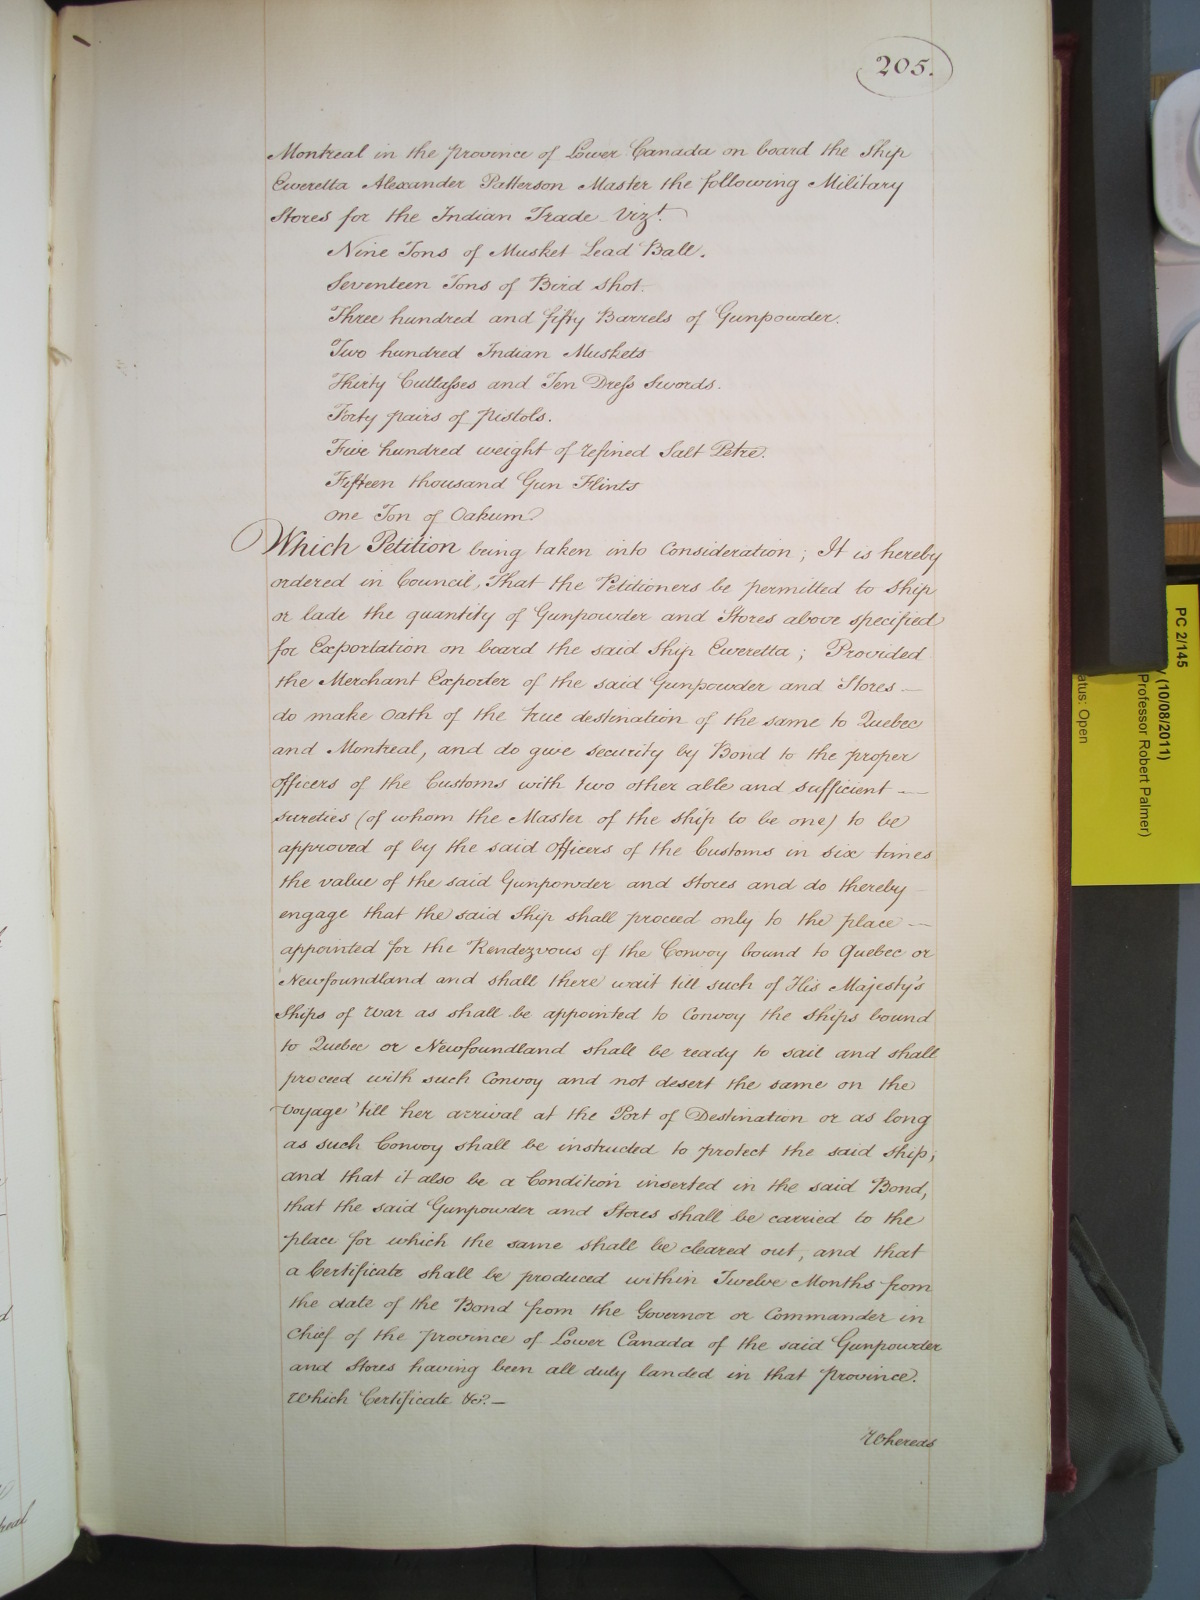 205.
Montreal in the province of Lower Canada on board the Ship
Eweretta Alexander Patterson Master the following Military
Stores for the Indian Trade Vizt.
Nine Tons of Musket Lead Ball.
Seventeen Tons of Bird Shot.
Three hundred and fifty Barrels of Gunpowder.
Two hundred Indian Muskets
Thirty Cutlasses and Ten Dress Swords.
Forty pairs of Pistols.
Five hundred weight of refined Salt Petre.
Fifteen thousand Gun Flints
One Ton of Oakum.
Which Petition being taken into Consideration; It is hereby
ordered in Council, That the Petitioners be permitted to Ship
or lade the quantity of Gunpowder and Stores above specified
for Exportation on board the said Ship Eweretta; Provided
the Merchant Exporter of the said Gunpowder and Stores —
do make Oath of the true destination of the same to Quebec
and Montreal, and do give security by Bond to the proper
Officers of the Customs with two other able and sufficient —
sureties (of whom the Master of the ship to be one) to be
approved of by the said Officers of the Customs in six times
the value of the said Gunpowder and Stores and do thereby
engage that the said Ship shall proceed only to the place —
appointed for the Rendezvous of the Convoy bound to Quebec or
Newfoundland and shall there wait till such of His Majesty's
Ships of War as shall be appointed to Convoy the Ships bound
to Quebec or Newfoundland shall be ready to sail and shall
proceed with such Convoy and not desert the same on the
Voyage 'till her arrival at the Port of Destination or as long
as such Convoy shall be instructed to protect the said Ship;
and that it also be a Condition inserted in the said Bond,
that the said Gunpowder and Stores shall be carried to the
place for which the same shall be cleared out, and that
a Certificate shall be produced within Twelve Months from
the date of the Bond from the Governor or Commander in
Chief of the province of Lower Canada of the said Gunpowder
and Stores having been all duly landed in that Province.
Which Certificate &c. —
Whereas
PC 2/145
(10/08/2011)
Professor Robert Palmer)
atus: Open